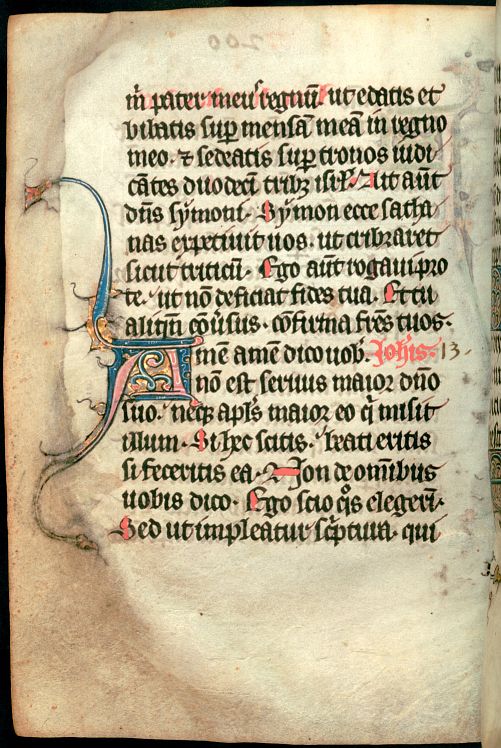 200
m̄ pater meus regnū. ut edatis et
bibatis sup̄ mensā meā in regno
meo. ⁊ sedeatis sup̄ tronos iudi
cātes duodecī tribꝫ isrł. Ait aūt
dn̄s symoni. Symon ecce satha
nas expetiuit uos. ut cribraret
sicut triticū. Ego aūt rogaui pro
te. ut nō deficiat fides tua. Et tu
aliqn̄ cōuersus. cōfirma fr̄es tuos.
Amē amē dico uob̄. Joħis. 13.
nō est seruus maior dn̄o
suo. neqꝫ apl̄s maior eo q̄ misit
illum. Si hec scitis. beati eritis
si feceritis ea. Non de omībus
uobis dico. Ego scio q̄s elegerī.
Sed ut impleatur sc̄ptura. qui